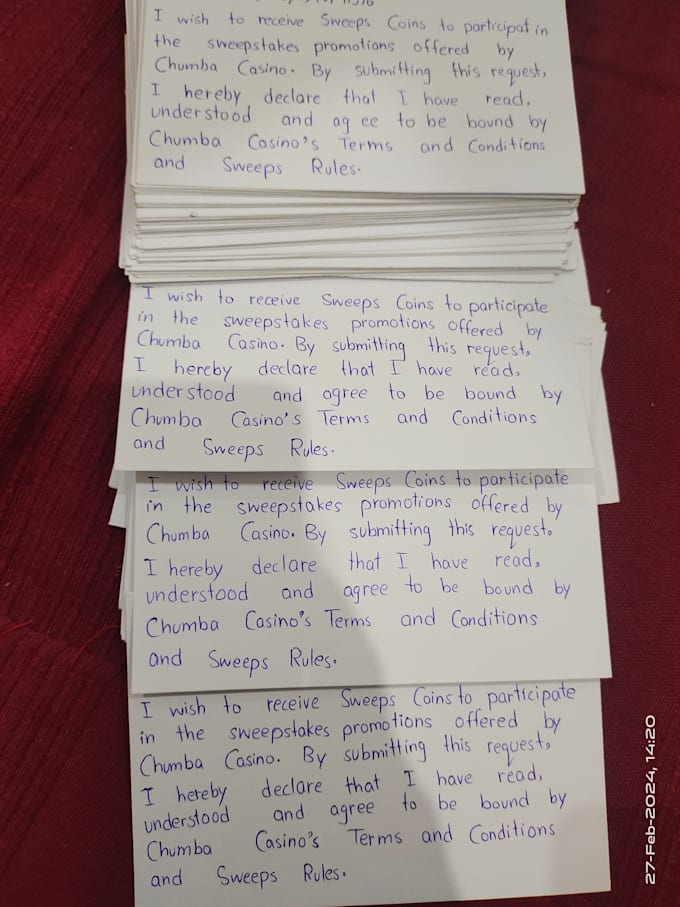 I wish to receive Sweeps Coins to participat in
the sweepstakes promotions offered by
Chumba Casino. By submitting this request,
I hereby declare that I have read,
understood and ag ee to be bound by
Chumba Casino's Terms and Conditions
and Sweeps Rules.
I wish to receive Sweeps Coins to participate
in the sweepstakes promotions offered by
Chumba Casino. By submitting this request,
I hereby declare that I have read,
understood and agree to be bound by
Chumba Casino's Terms and Conditions
and Sweeps Rules.
I wish to receive Sweeps Coins to participate
in the sweepstakes promotions offered by
Chumba Casino. By submitting this request,
I hereby declare that I have read,
understood and agree to be bound by
Chumba Casino's Terms and Conditions
and Sweeps Rules.
I wish to receive Sweeps Coins to participate
in the sweepstakes promotions offered by
Chumba Casino. By submitting this request,
I hereby declare that I have read,
understood and agree to be bound by
Chumba Casino's Terms and Conditions
and Sweeps Rules.
27-Feb-2024, 14:20